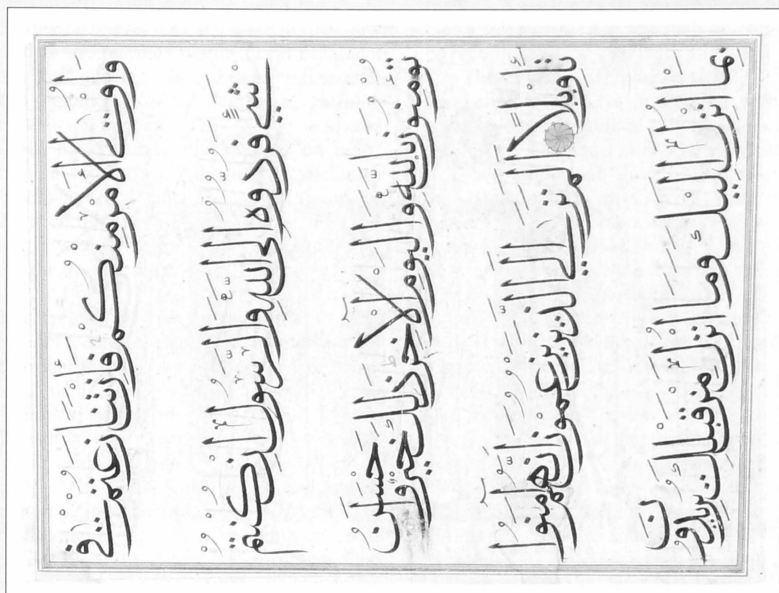 واولى الامر منكم فان تنازعتم فى
شىء فردوه الى الله والرسول ان كنتم
تومنون بالله واليوم الاخر ذلك خير واحسن
تاويلا الم تر الى الذين يزعمون انهم امنوا
بما انزل اليك وما انزل من قبلك يريدون